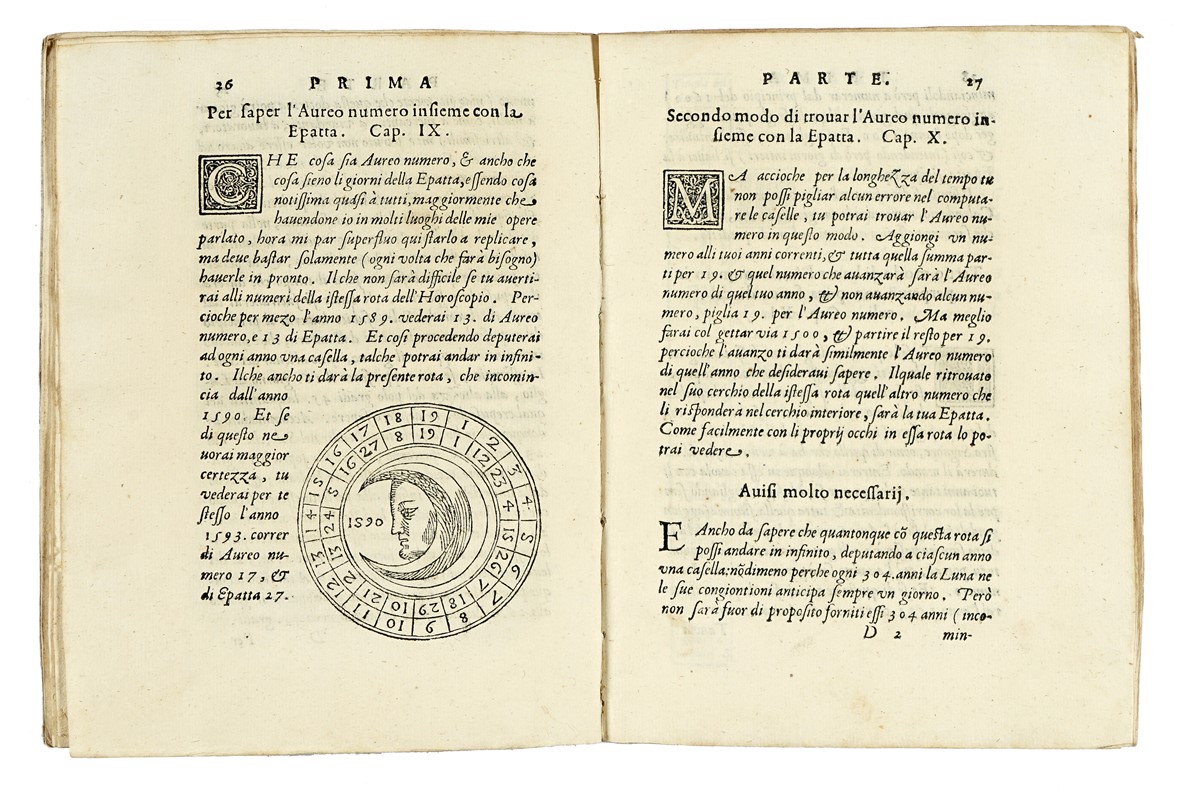 26 PRIMA
Per ſaper l'Aureo numero inſieme con la
Epatta. Cap. IX.
CHE coſa ſia Aureo numero, & ancho che
coſa ſieno li giorni della Epatta, eſſendo coſa
notiſsima quaſi à tutti, maggiormente che
hauendone io in molti luoghi delle mie opere
parlato, hora mi par ſuperfluo qui ſtarlo a replicare,
ma deue baſtar ſolamente (ogni volta che farà biſogno)
hauerle in pronto. Il che non ſarà difficile ſe tu auerti-
rai alli numeri della iſteſſa rota dell'Horoſcopio. Per-
cioche per mezo l'anno 1589. vederai 13. di Aureo
numero, e 13 di Epatta. Et coſi procedendo deputerai
ad ogni anno vna caſella, talche potrai andar in infini-
to. Ilche ancho ti darà la preſente rota, che incomin-
cia dall'anno
1590. Et ſe
di queſto ne
uorai maggior
certezza, tu
vederai per te
ſteſſo l'anno
1593. correr
di Aureo nu-
mero 17, &
di Epatta 27.
19 1 2 3 4 5 6 7 8 9 10 11 12 13 14 15 16 17 18
19 1 12 23 4 15 26 7 18 29 10 21 2 13 24 5 16 27 8
1590
PARTE. 27
Secondo modo di trouar l'Aureo numero in-
ſieme con la Epatta. Cap. X.
MA accioche per la longhezza del tempo tu
non poſſi pigliar alcun errore nel computa-
re le caſelle, tu potrai trouar l'Aureo nu-
mero in queſto modo. Aggiongi vn nu-
mero alli tuoi anni correnti, & tutta quella ſumma par-
ti per 19. & quel numero che auanzarà ſarà l'Aureo
numero di quel tuo anno, & non auanzando alcun nu-
mero, piglia 19. per l'Aureo numero. Ma meglio
farai col gettar via 1500, & partire il reſto per 19.
percioche l'auanzo ti darà ſimilmente l'Aureo numero
di quell'anno che deſideraui ſapere. Ilquale ritrouato
nel ſuo cerchio della iſteſſa rota quell'altro numero che
li riſponderà nel cerchio interiore, ſarà la tua Epatta.
Come facilmente con li proprij occhi in eſſa rota lo po-
trai vedere.
Auiſi molto neceſſarij.
E Ancho da ſapere che quantonque cõ queſta rota ſi
poſſi andare in infinito, deputando a ciaſcun anno
vna caſella: nõdimeno perche ogni 304. anni la Luna ne
le ſue congiontioni anticipa ſempre vn giorno. Però
non ſarà fuor di propoſito forniti eſſi 304 anni (inco-
D 2 min-